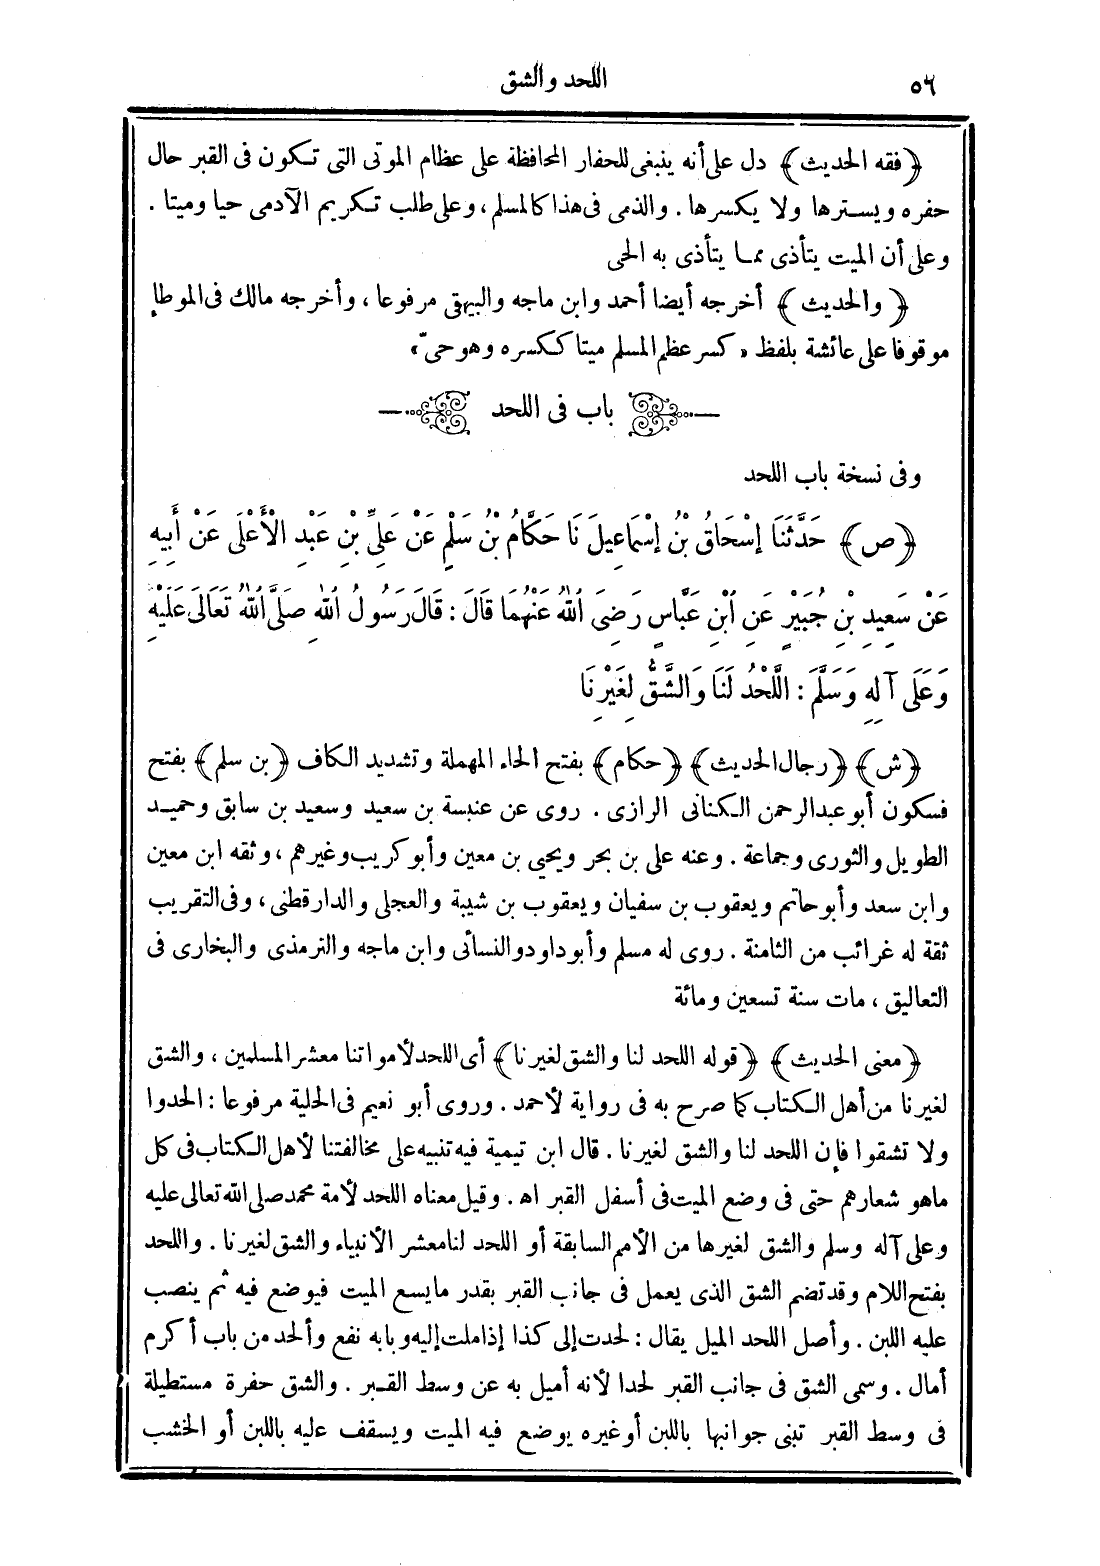 ٥٦
اللحد والشق
﴿فقه الحديث﴾ دل على أنه ينبغى للحفار المحافظة على عظام الموتى التى تكون فى القبر حال
حفره ويسترها ولا يكسرها . والذمى فى هذا كالمسلم ، وعلى طلب تكريم الآدمى حيا وميتا .
وعلى أن الميت يتأذى مما يتأذى به الحى
﴿والحديث﴾ أخرجه أيضا أحمد وابن ماجه والبيهقى مرفوعا ، وأخرجه مالك فى الموطإ
موقوفا على عائشة بلفظ «كسر عظم المسلم ميتا ككسره وهو حىّ»
باب فى اللحد
وفى نسخة باب اللحد
﴿ص﴾ حَدَّثَنَا إِسْحَاقُ بْنُ إِسْمَاعِيلَ نَا حَكَّامُ بْنُ سَلْمٍ عَنْ عَلِىِّ بْنِ عَبْدِ الْأَعْلَى عَنْ أَبِيهِ
عَنْ سَعِيدِ بْنِ جُبَيْرٍ عَنِ ابْنِ عَبَّاسٍ رَضِىَ اللهُ عَنْهُمَا قَالَ : قَالَ رَسُولُ اللهِ صَلَّى اللهُ تَعَالَى عَلَيْهِ
وَعَلَى آلِهِ وَسَلَّمَ : اللَّحْدُ لَنَا وَالشَّقُّ لِغَيْرِنَا
﴿ش﴾ ﴿رجال الحديث﴾ ﴿حكام﴾ بفتح الحاء المهملة وتشديد الكاف ﴿بن سلم﴾ بفتح
فسكون أبو عبد الرحمن الكنانى الرازى . روى عن عنبسة بن سعيد وسعيد بن سابق وحميد
الطويل والثورى وجماعة . وعنه على بن بحر ويحيى بن معين وأبو كريب وغيرهم ، وثقه ابن معين
وابن سعد وأبو حاتم ويعقوب بن سفيان ويعقوب بن شيبة والعجلى والدارقطنى ، وفى التقريب
ثقة له غرائب من الثامنة . روى له مسلم وأبو داود والنسائى وابن ماجه والترمذى والبخارى فى
التعاليق ، مات سنة تسعين ومائة
﴿معنى الحديث﴾ ﴿قوله اللحد لنا والشق لغيرنا﴾ أى اللحد لأمواتنا معشر المسلمين ، والشق
لغيرنا من أهل الكتاب كما صرح به فى رواية لأحمد . وروى أبو نعيم فى الحلية مرفوعا : الحدوا
ولا تشقوا فإن اللحد لنا والشق لغيرنا . قال ابن تيمية فيه تنبيه على مخالفتنا لأهل الكتاب فى كل
ما هو شعارهم حتى فى وضع الميت فى أسفل القبر اه . وقيل معناه اللحد لأمة محمد صلى الله تعالى عليه
وعلى آله وسلم والشق لغيرها من الأمم السابقة أو اللحد لنا معشر الأنبياء والشق لغيرنا . واللحد
بفتح اللام وقد تضم الشق الذى يعمل فى جانب القبر بقدر ما يسع الميت فيوضع فيه ثم ينصب
عليه اللبن . وأصل اللحد الميل يقال : لحدت إلى كذا إذا ملت إليه وبابه نفع وألحد من باب أكرم
أمال . وسمى الشق فى جانب القبر لحدا لأنه أميل به عن وسط القبر . والشق حفرة مستطيلة
فى وسط القبر تبنى جوانبها باللبن أو غيره يوضع فيه الميت ويسقف عليه باللبن أو الخشب